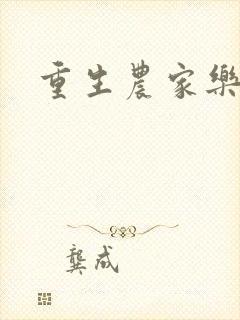 重生農家樂
龔成